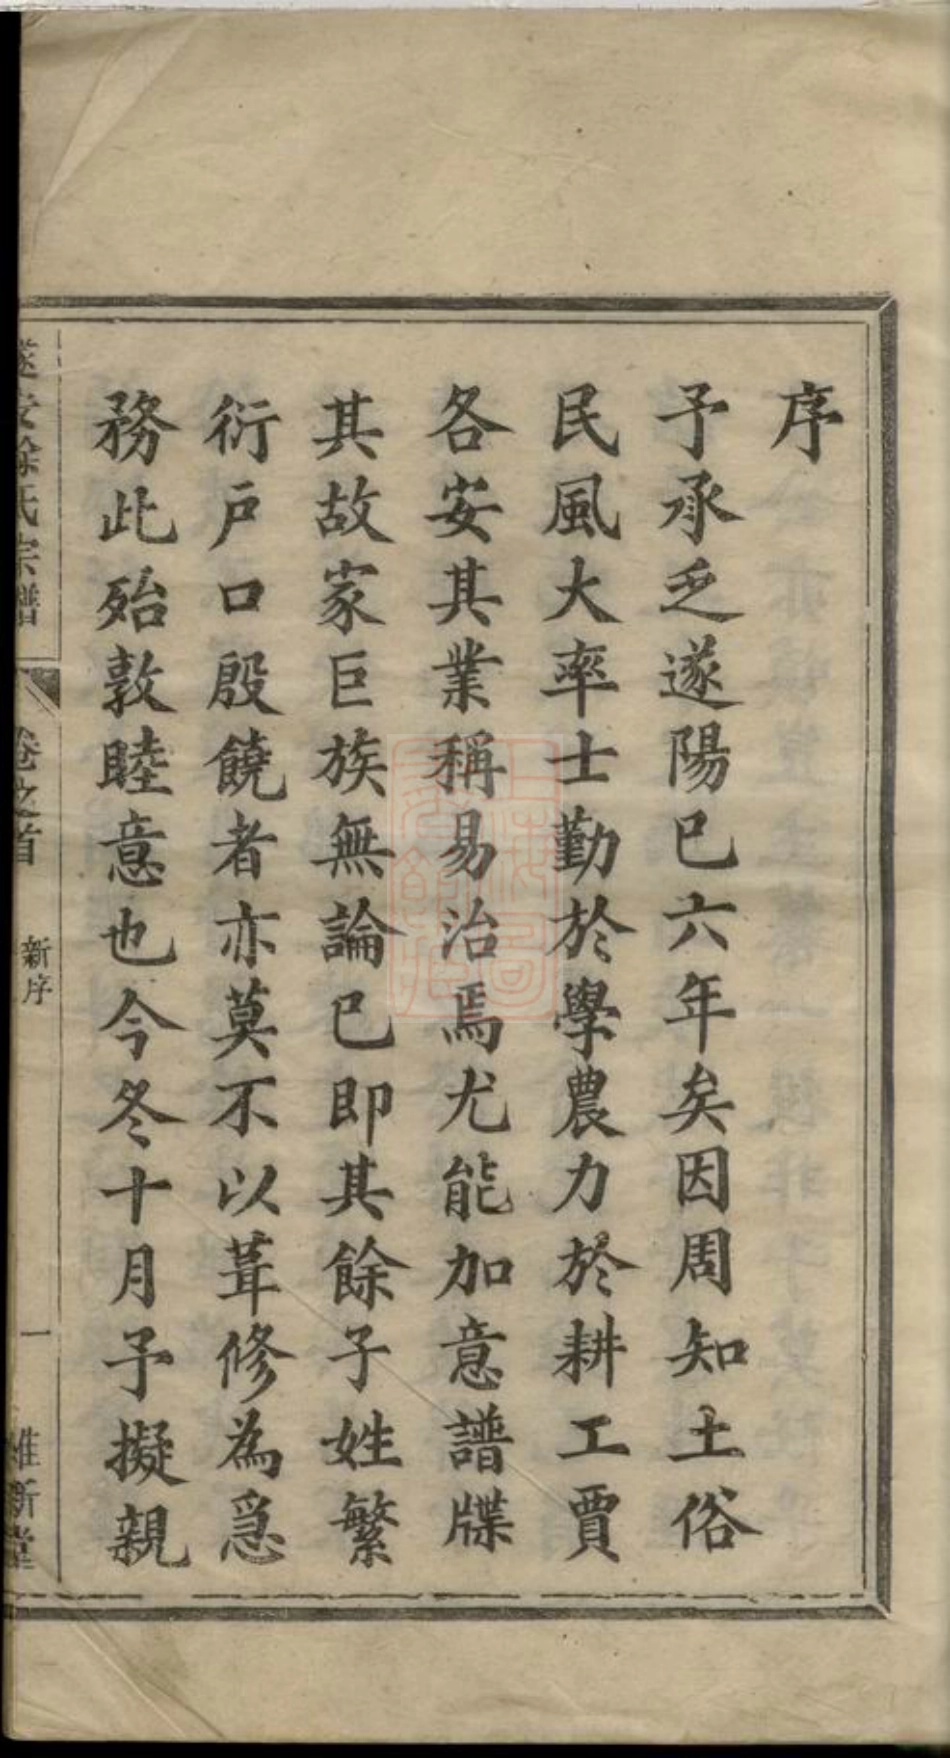 序
予承乏遂陽已六年矣因周知土俗
民風大率士勤於學農力於耕工賈
各安其業稱易治焉尤能加意譜牒
其故家巨族無論已即其餘子姓繁
衍戶口殷饒者亦莫不以葺修為急
務此殆敦睦意也今冬十月予擬親
遂安徐氏宗譜
卷之首
新序
一
維新堂